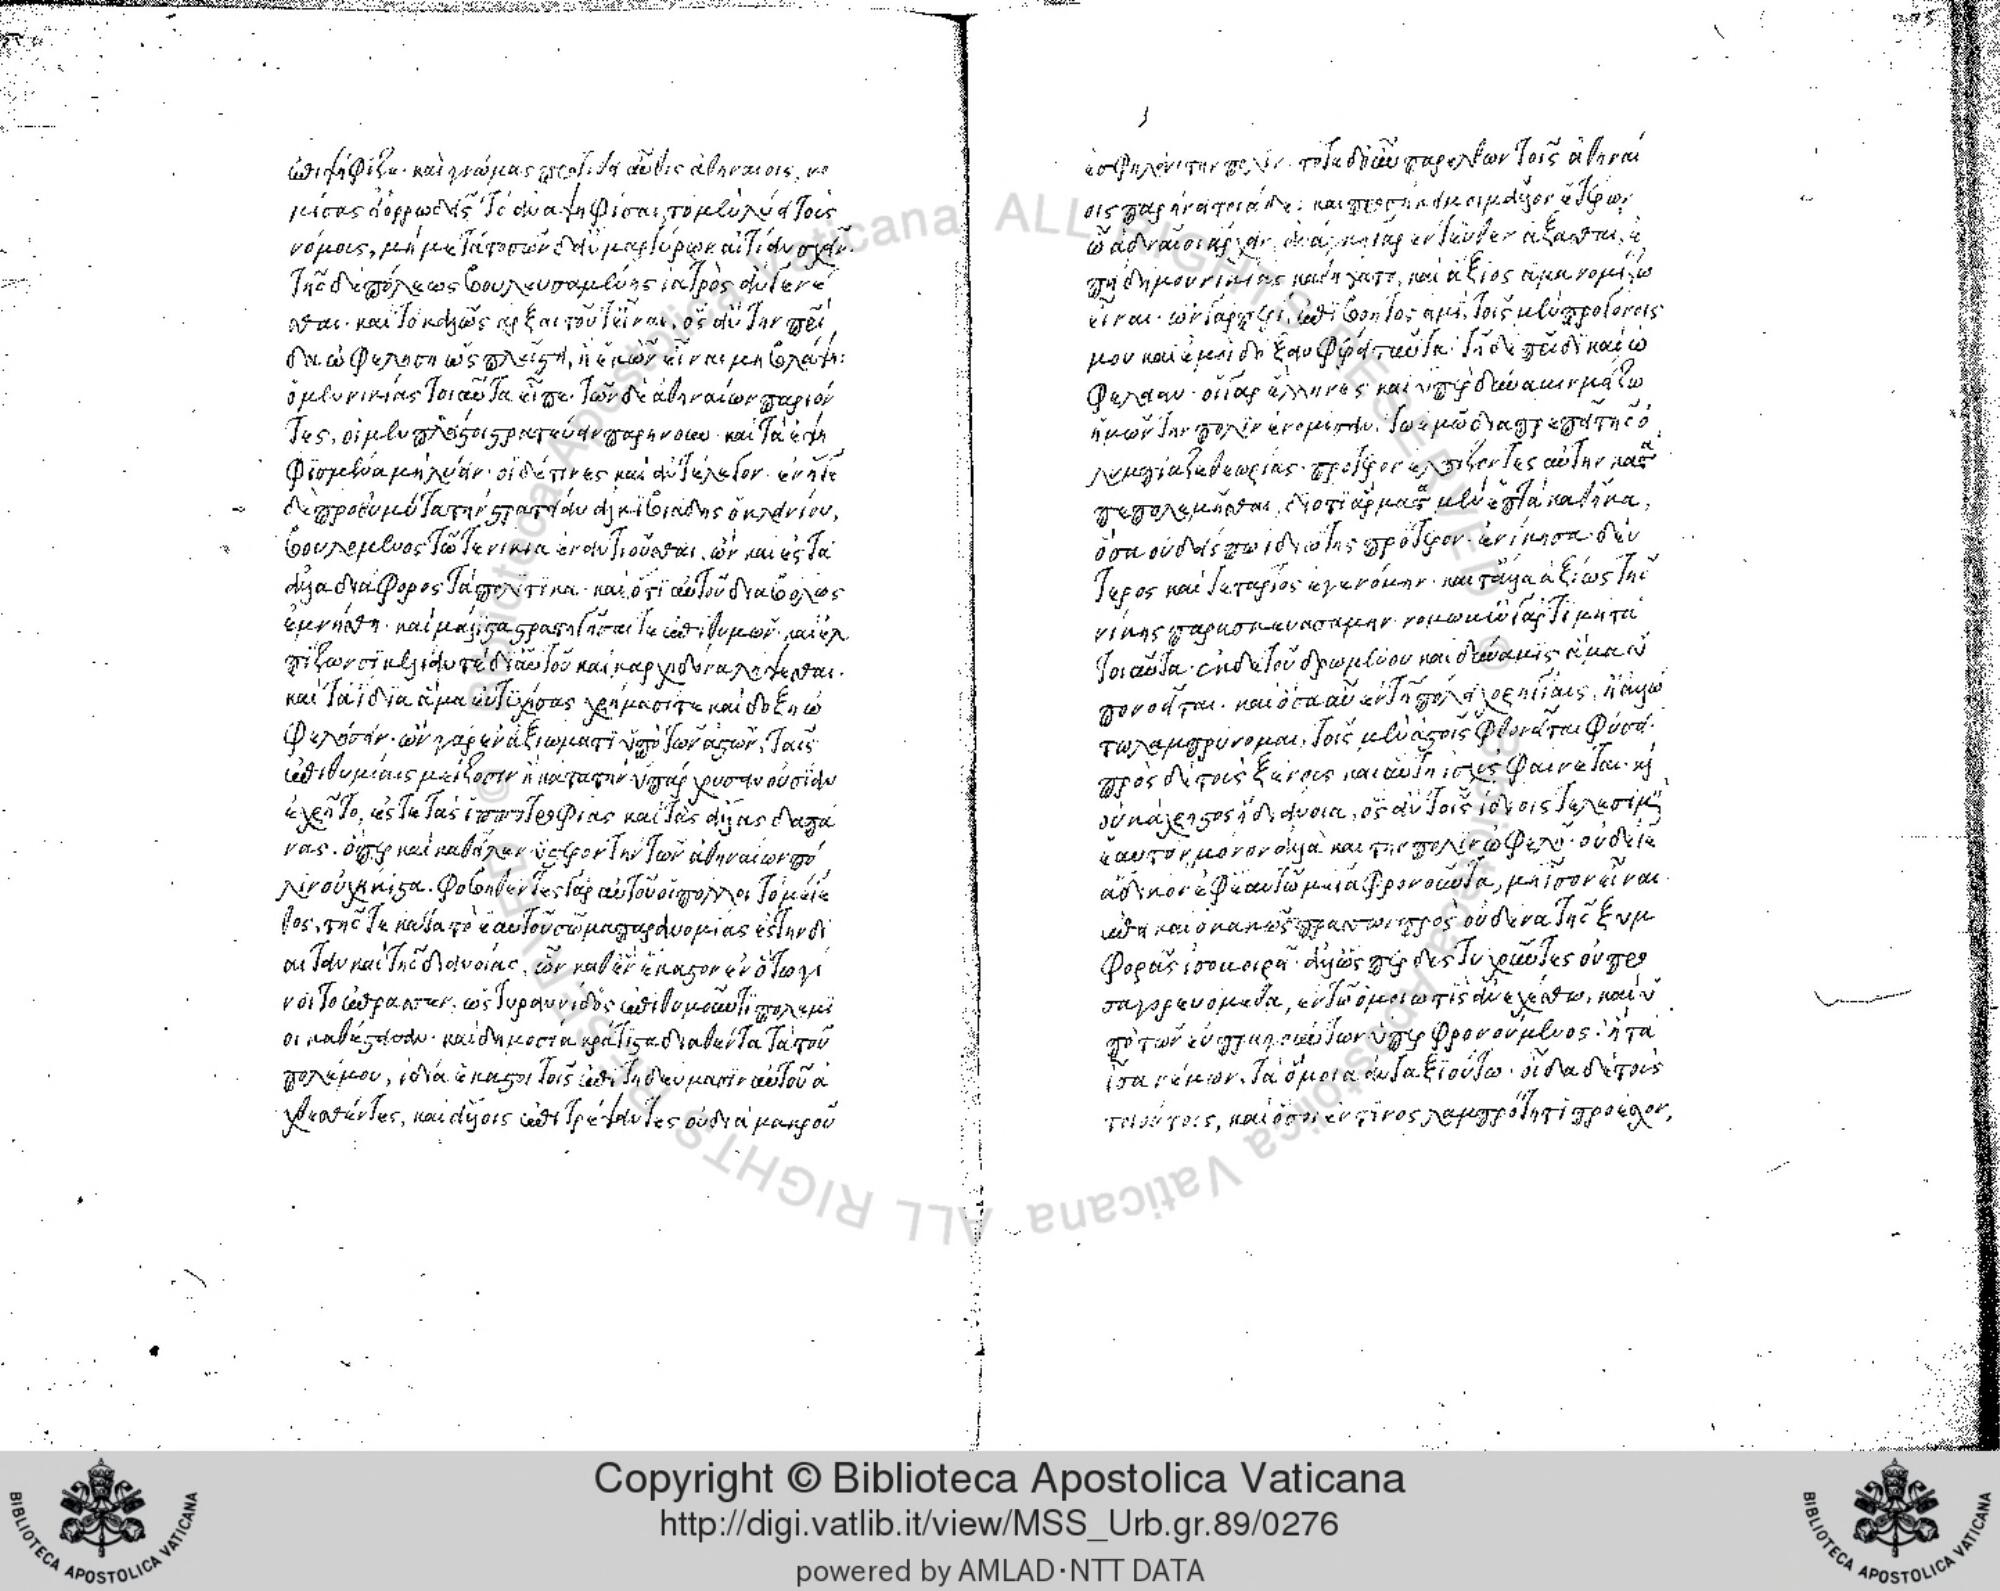 ἐπιψήφιζε· καὶ γνώμας προτίθει αὖθις ἀθηναίοις, νο
μίσας εἰ ὀρρωδεῖς τὸ ἀναψηφίσαι, τὸ μὲν λύειν τοὺς
νόμους, μὴ μετὰ τοσῶνδ' ἂν μαρτύρων αἰτίαν σχεῖν·
τῆς δὲ πόλεως βουλευσαμένης ἰατρὸς ἂν γενέ
σθαι· καὶ τὸ καλῶς ἄρξαι τοῦτ' εἶναι, ὃς ἂν τὴν πατρί
δα ὠφελήση ὡς πλεῖστα, ἢ ἑκὼν εἶναι μὴ βλάψη:
ὁ μὲν νικίας τοιαῦτα εἶπε· τῶν δὲ ἀθηναίων παριόν
τες, οἱ μὲν πλεῖστοι στρατεύειν παρήνουν· καὶ τὰ ἐψη
φισμένα μὴ λύειν· οἱ δέ τινες καὶ ἀντέλεγον· ἐνῆγε
δὲ προθυμότατα τὴν στρατείαν ἀλκιβιάδης ὁ κλεινίου,
βουλόμενος τῶ τε νικία ἐναντιοῦσθαι, ὢν καὶ ἐς τὰ
ἄλλα διάφορος τὰ πολιτικὰ· καὶ ὅτι αὐτοῦ διαβόλως
ἐμνήσθη· καὶ μάλιστα στρατηγῆσαί τε ἐπιθυμῶν· καὶ ἐλ
πίζων σικελίαν τε δι' αὐτοῦ καὶ καρχηδόνα λήψεσθαι·
καὶ τὰ ἴδια ἅμα εὐτυχήσας χρήμασί τε καὶ δόξη ὠ
φελήσειν· ὢν γὰρ ἐν ἀξιώματι ὑπὸ τῶν ἀστῶν, ταῖς
ἐπιθυμίαις μείζοσιν ἢ κατὰ τὴν ὑπάρχουσαν οὐσίαν
ἐχρῆτο, ἔς τε τὰς ἱπποτροφίας καὶ τὰς ἄλλας δαπά
νας· ὅπερ καὶ καθεῖλεν ὕστερον τὴν τῶν ἀθηναίων πό
λιν οὐχ ἥκιστα· φοβηθέντες γὰρ αὐτοῦ οἱ πολλοὶ τὸ μέγε
θος, τῆς τε κατὰ τὸ ἑαυτοῦ σῶμα παρανομίας ἐς τὴν δί
αιταν καὶ τῆς διανοίας, ὧν καθ' ἓν ἕκαστον ἐν ὅτω γί
νοιτο ἔπρασσεν, ὡς τυραννίδος ἐπιθυμοῦντι πολέμι
οι καθέστασαν· καὶ δημοσία κράτιστα διαθέντα τὰ τοῦ
πολέμου, ἰδία ἕκαστοι τοῖς ἐπιτηδεύμασιν αὐτοῦ ἀ
χθεσθέντες, καὶ ἄλλοις ἐπιτρέψαντες οὐ διὰ μακροῦ
ἔσφηλαν τὴν πόλιν· τότε δ' οὖν παρελθὼν τοῖς ἀθηναί
οις παρήνει τοιάδε: καὶ προσήκει μοι μᾶλλον ἑτέρων,
ὦ ἀθηναῖοι ἄρχειν, ἀνάγκη γὰρ ἐντεῦθεν ἄξασθαι, ἐ
πειδή μου νικίας καθήψατο, καὶ ἄξιος ἅμα νομίζω
εἶναι· ὧν γὰρ πέρι ἐπιβόητός εἰμι, τοῖς μὲν προγόνοις
μου καὶ ἐμοὶ δόξαν φέρει ταῦτα· τῆ δὲ πατρίδι καὶ ὠ
φελίαν· οἱ γὰρ ἕλληνες καὶ ὑπὲρ δύναμιν μείζω
ἡμῶν τὴν πόλιν ἐνόμισαν, τῶ ἐμῶ διαπρεπεῖ τῆς ὀ
λυμπίαζε θεωρίας· πρότερον ἐλπίζοντες αὐτὴν κατα
πεπολεμῆσθαι, διότι ἅρματα μὲν ἑπτὰ καθῆκα,
ὅσα οὐδείς πω ἰδιώτης πρότερον· ἐνίκησα δέ
τερος καὶ τέταρτος ἐγενόμην· καὶ τἆλλα ἀξίως τῆς
νίκης παρεσκευασάμην· νόμω μὲν γὰρ τιμὴ τὰ
τοιαῦτα· ἐκ δὲ τοῦ δρωμένου καὶ δύναμις ἅμα ὑ
πονοεῖται· καὶ ὅσα αὖ ἐν τῆ πόλει χορηγίαις, ἢ ἄλλω
τω λαμπρύνομαι, τοῖς μὲν ἀστοῖς φθονεῖται φύσει·
πρὸς δὲ τοὺς ξένους καὶ αὕτη ἰσχὺς φαίνεται· καὶ
οὐκ ἄχρηστος ἡ διάνοια, ὃς ἂν τοῖς ἰδίοις τέλεσι μὴ
ἑαυτὸν μόνον ἀλλὰ καὶ τὴν πόλιν ὠφελῆ· οὐδέ γε
ἄδικον ἐφ' ἑαυτῶ μέγα φρονοῦντα, μὴ ἴσον εἶναι·
ἐπεὶ καὶ ὁ κακῶς πράσσων πρὸς οὐδένα τῆς ξυμ
φορᾶς ἰσομοιρεῖ· ἀλλ' ὥσπερ δυστυχοῦντες οὐ προ
σαγορευόμεθα, ἐν τῶ ὁμοίω τις ἀνεχέσθω, καὶ ὑ
πὸ τῶν εὐπραγούντων ὑπερφρονούμενος· ἢ τὰ
ἴσα νέμων, τὰ ὅμοια ἀνταξιούτω· οἶδα δὲ τοὺς
τοιούτους, καὶ ὅσοι ἔν τινος λαμπρότητι προέσχον,
Copyright © Biblioteca Apostolica Vaticana
http://digi.vatlib.it/view/MSS_Urb.gr.89/0276
powered by AMLAD·NTT DATA